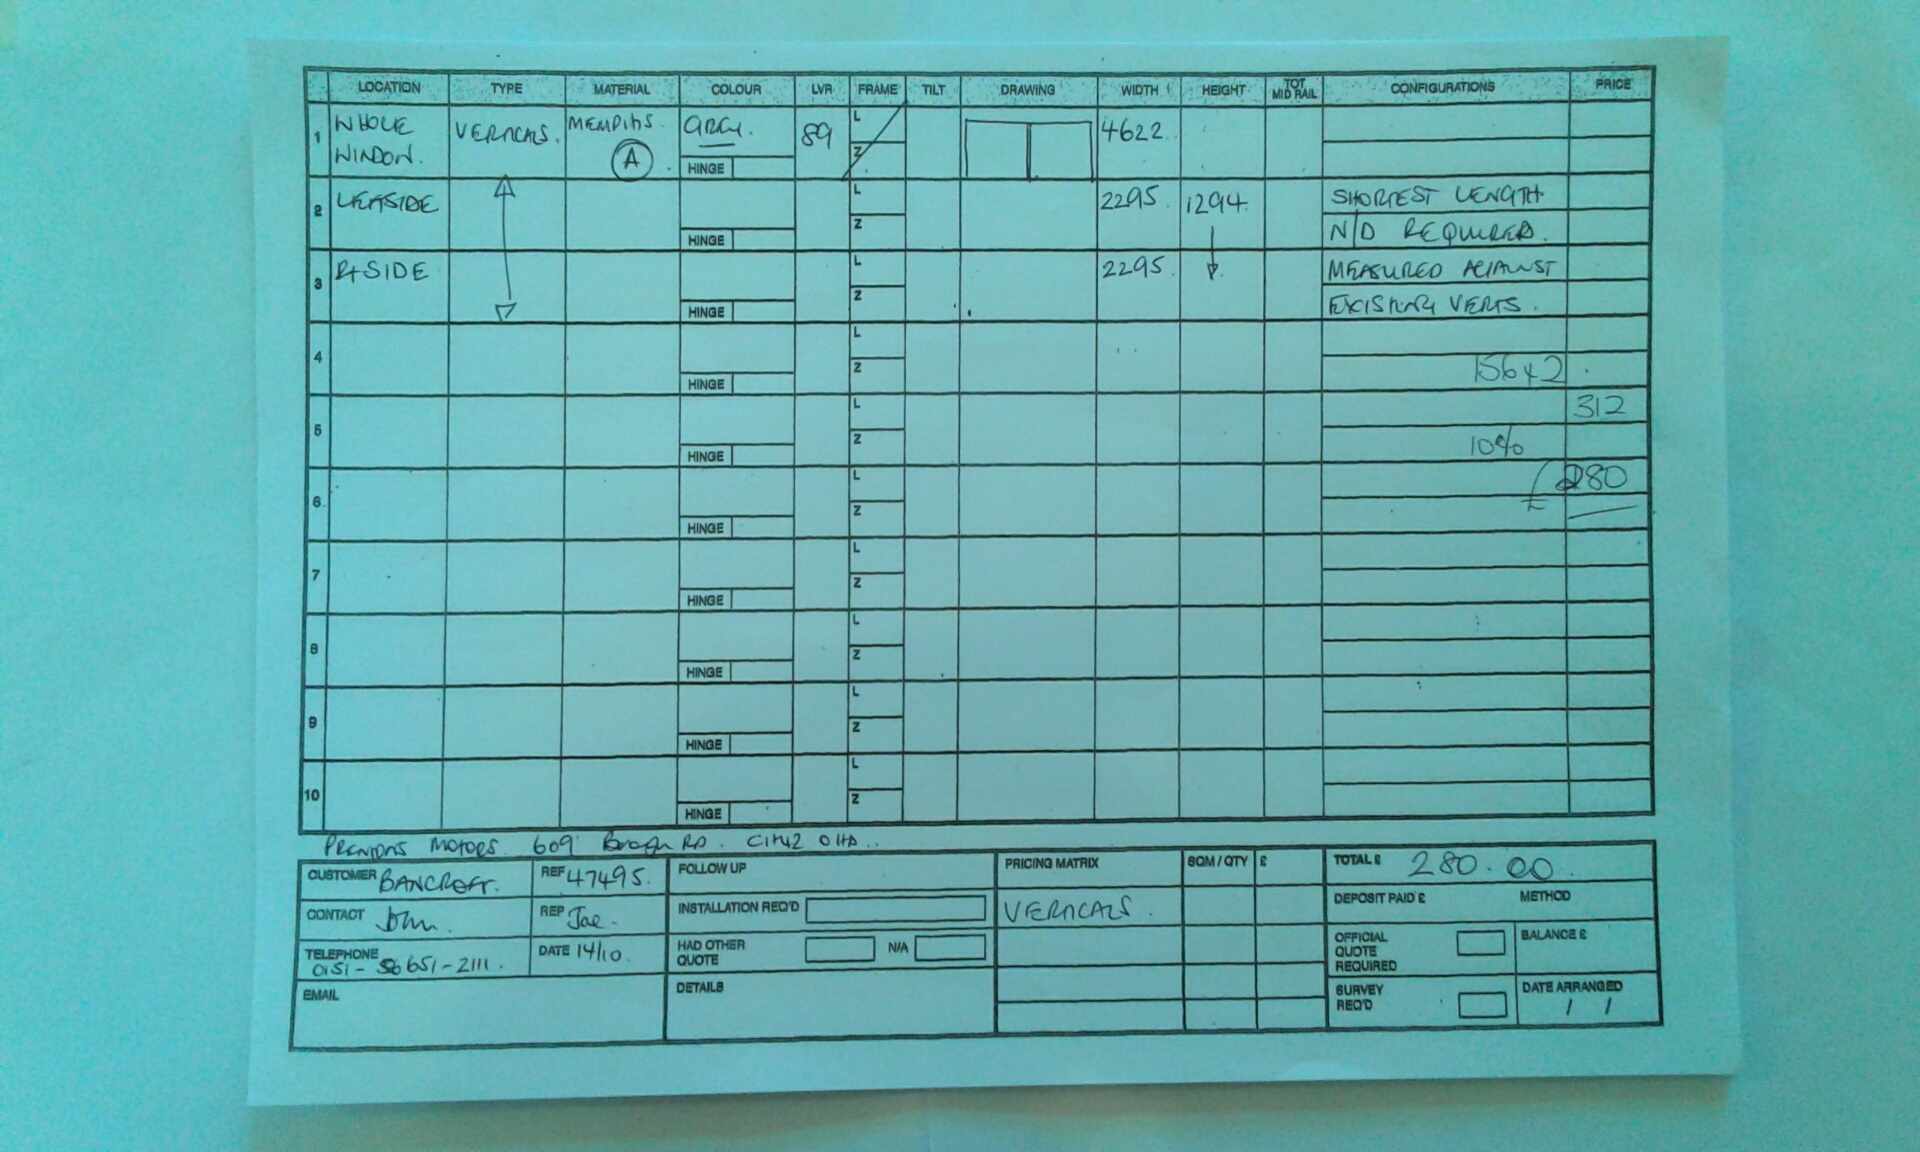 LOCATION TYPE MATERIAL COLOUR LVR FRAME TILT DRAWING WIDTH HEIGHT TOT MID RAIL CONFIGURATIONS PRICE
1 WHOLE WINDOW. VERTICALS. MEMPHIS A GREY. HINGE 89 L Z 4622
2 LEFTSIDE HINGE L Z 2295 1294 SHORTEST LENGTH
N/D REQUIRED.
3 RTSIDE HINGE L Z 2295 MEASURED AGAINST
EXISTING VERTS.
4 HINGE L Z 156x2
5 HINGE L Z 312
10%
6 HINGE L Z £ 280
7 HINGE L Z
8 HINGE L Z
9 HINGE L Z
10 HINGE L Z
PRENTONS MOTORS 609 Borough RD. CH42
CUSTOMER BANCROFT. REF 47495.
CONTACT John. REP Joe.
TELEPHONE 0151- 651-2111. DATE 14/10.
EMAIL
FOLLOW UP
INSTALLATION REQ'D
HAD OTHER QUOTE N/A
DETAILS
PRICING MATRIX SQM / QTY £
VERTICALS.
TOTAL £ 280.00
DEPOSIT PAID £ METHOD
OFFICIAL QUOTE REQUIRED BALANCE £
SURVEY REQ'D DATE ARRANGED
/ /